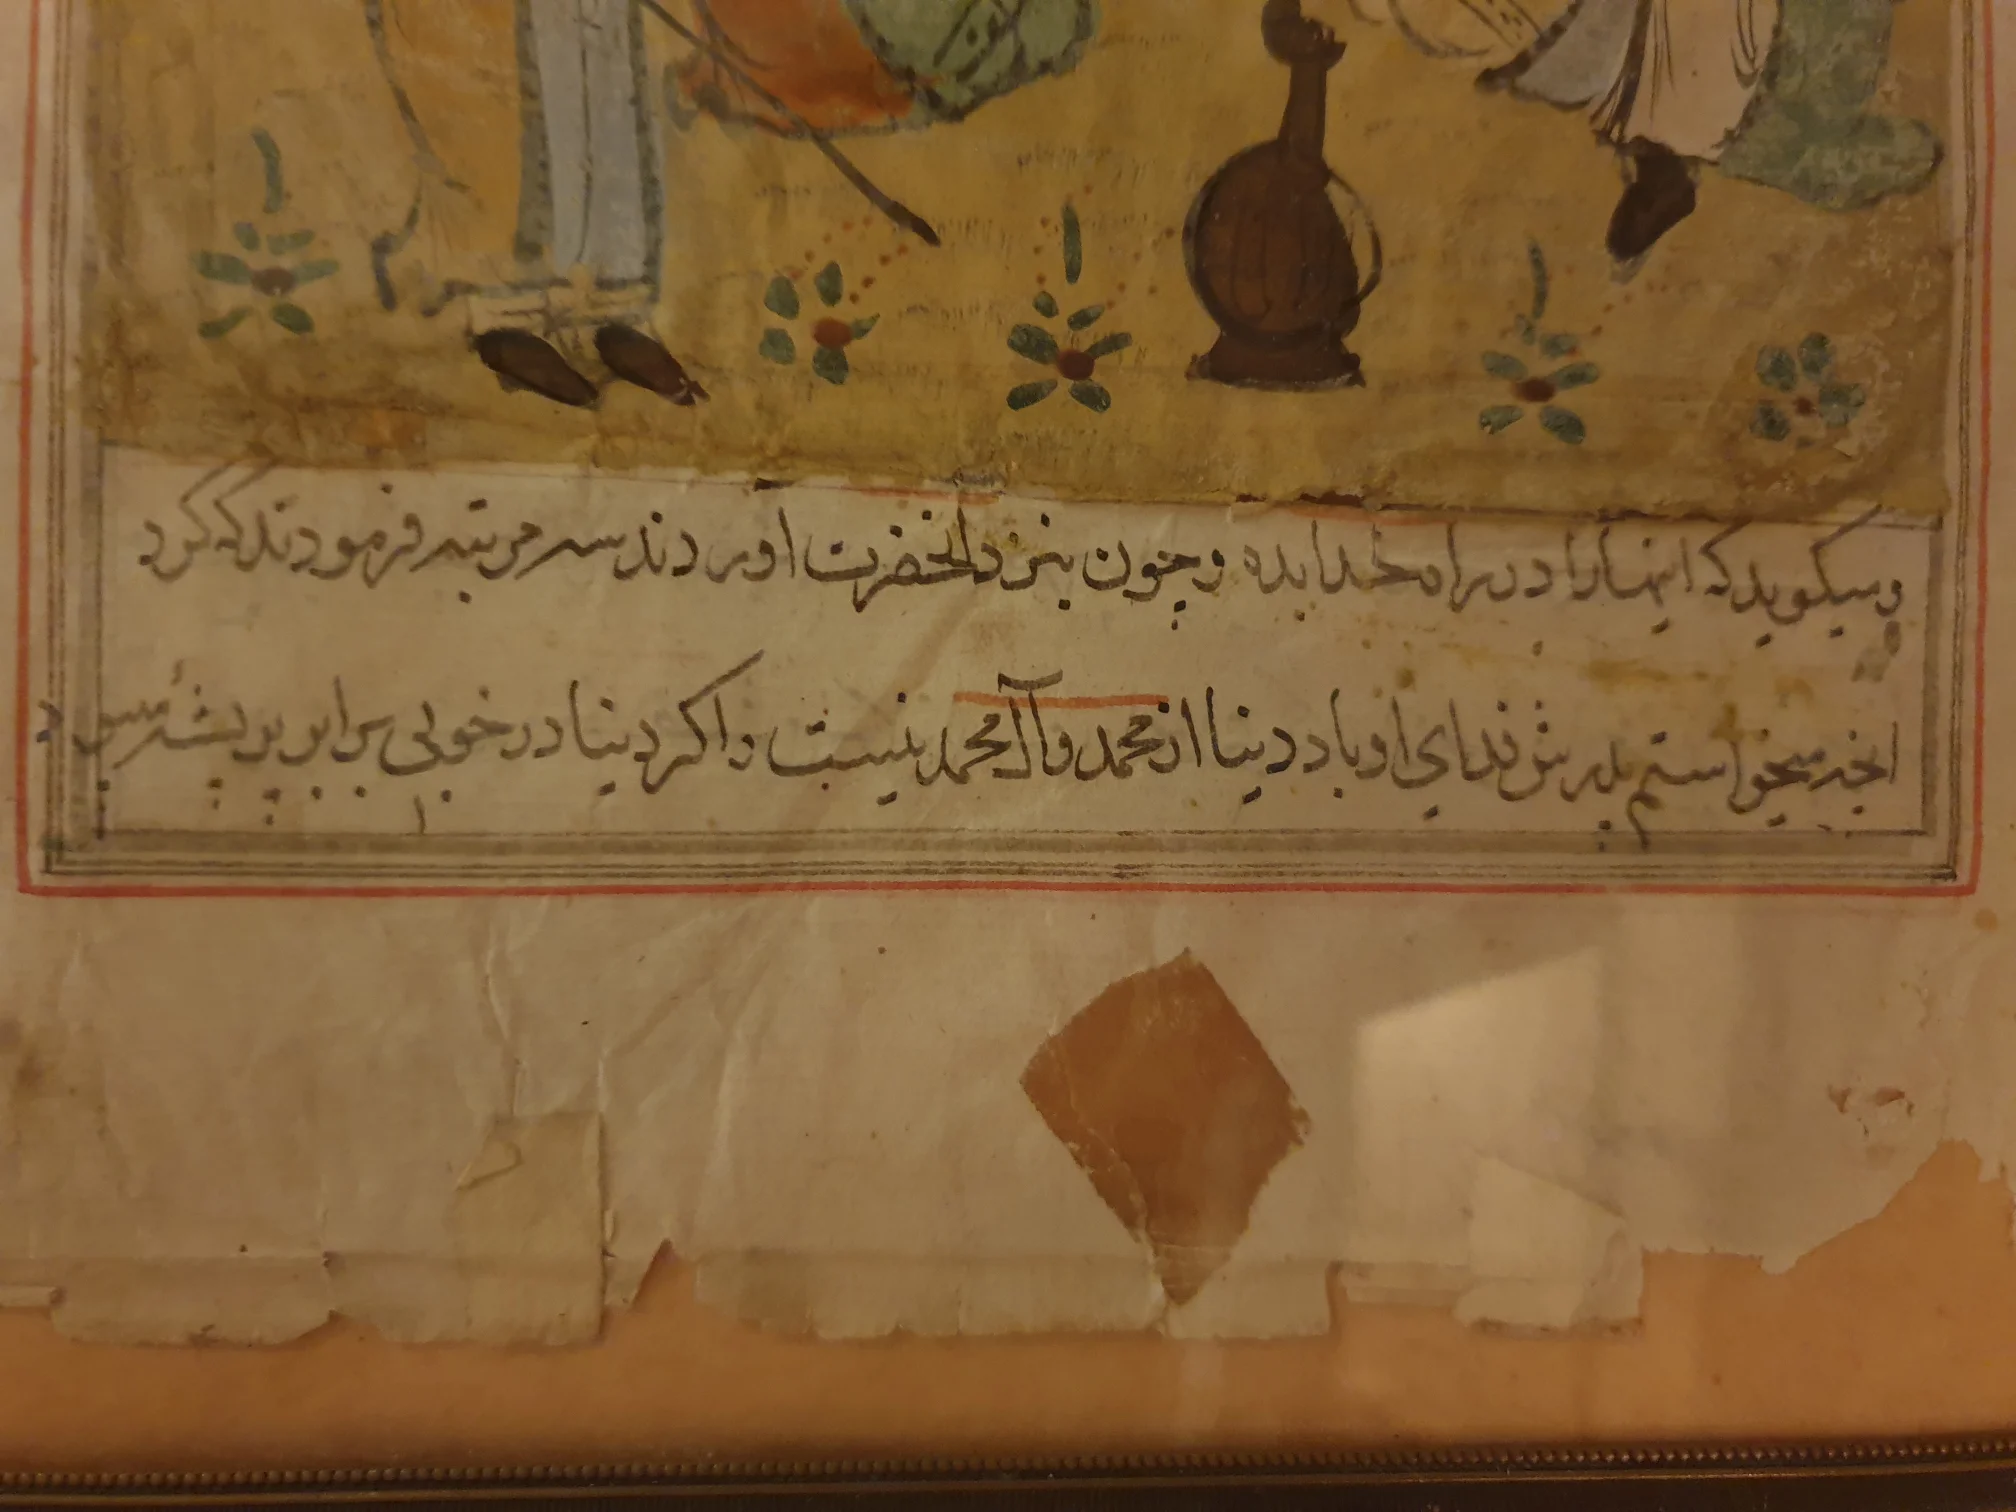 و میکوید که اینها را در راه خدا بده و چون بنزد انحضرت اوردند سه مرتبه فرمودند که کرد
انچه میخواستم پدرش فدای او باد دنیا از محمد و آل محمد نیست و اکر دنیا در خوبی برابر پر پشهٔ